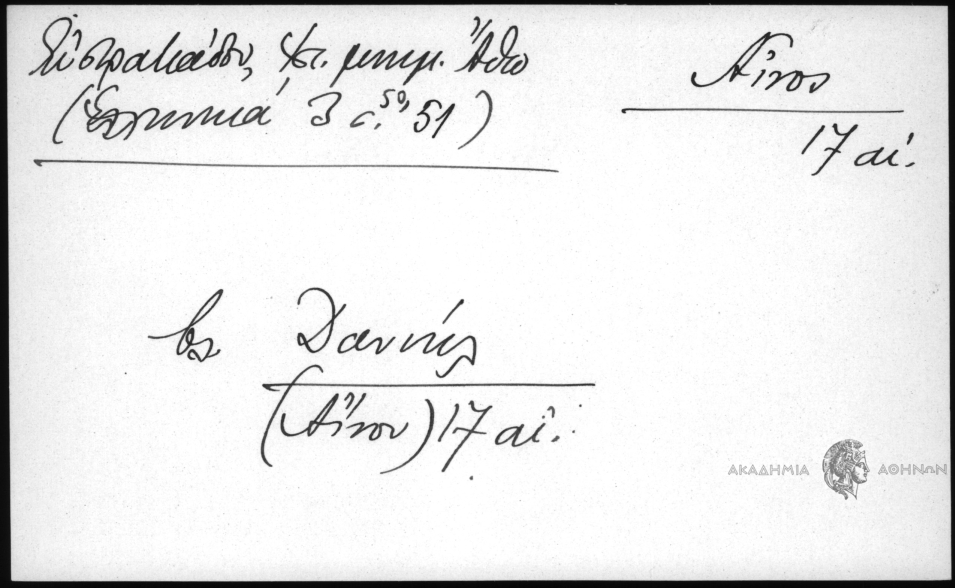 Εὐστρατιάδου, Ἱστ. μνημ. Ἄθω
(Ἑλληνικά 3 σ. 50, 51)
Αἶνος
17 αἰ.
βλ. Δανιήλ
(Αἴνου) 17 αἰ.
ΑΚΑΔΗΜΙΑ ΑΘΗΝΩΝ